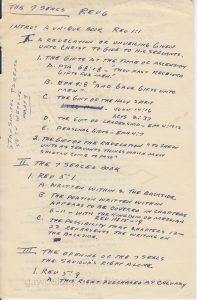 THE 7 SEALS REV 6
INTRO: A UNIQUE BOOK REV 1:1
I A REVELATION OR UNVEILING GIVEN
UNTO CHRIST TO GIVE TO HIS SERVANTS,
1. THE GIFTS AT THE TIME OF ASCENSION
A. PSA 68:18 - "THOU HAST RECEIVED
GIFTS FOR MEN"
B. EPH 4:8 "AND GAVE GIFTS
UNTO MEN"
C. THE GIFT OF THE HOLY SPIRIT
JOHN 14:16
ACTS 2:33
D. THE GIFT OF LEADERSHIP - EPH 4:11-12
E. PERSONAL GIFTS - EPH 4:7
2. THE GIFT OF THE REVELATION "TO SHEW
UNTO HIS SERVANTS THINGS WHICH MUST
SHORTLY COME TO PASS"
II THE 7 SEALED BOOK
1. REV 5:1
A. WRITTEN WITHIN & THE BACKSIDE
B. THE PORTION WRITTEN WITHIN
APPEARS TO BE COVERED IN CHAPTERS
6-11 - WITH THE KINGDOM OF MESSIAH
REV 11:15-18
C. THE POSSIBILITY THAT CHAPTERS 12-
22 REPRESENTS THE WRITING ON
THE BACKSIDE
III THE OPENING OF THE 7 SEALS
THE SAVIOUR'S RIGHT ALONE
1. REV 5:9
THIS RIGHT PURCHASED AT CALVARY